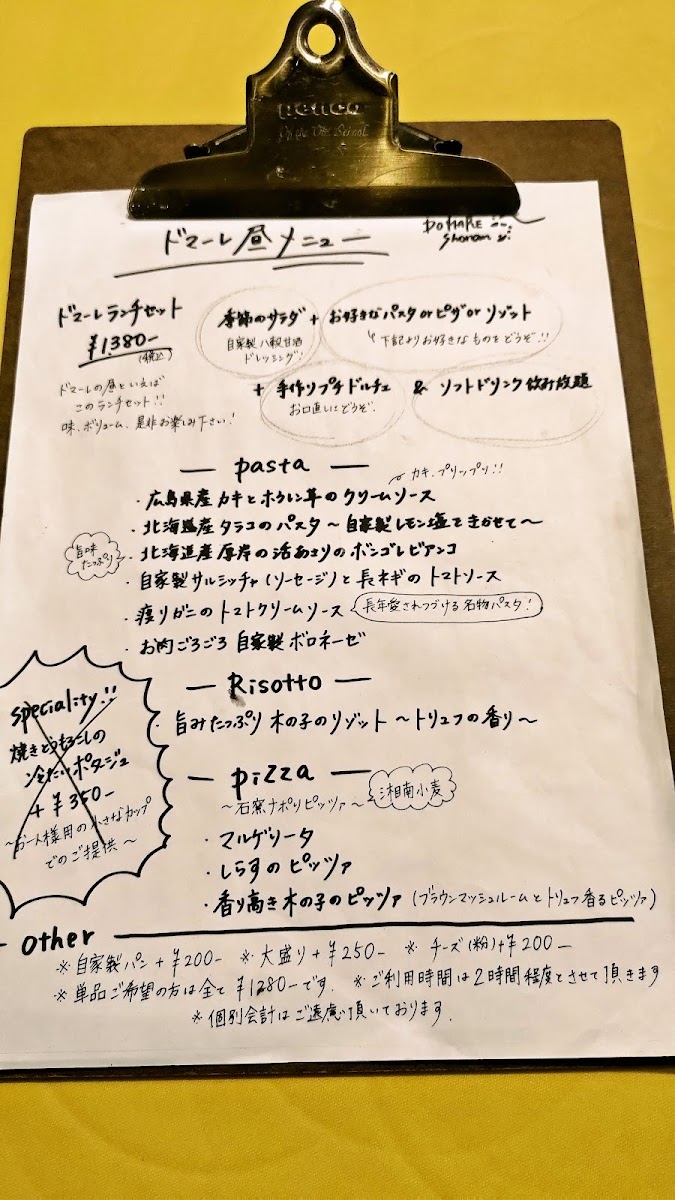 penco
ドマーレ昼メニュー
DOMARE
Shonan
ドマーレランチセット
¥1,380-
(税込)
季節のサラダ + お好きなパスタ or ピザ or リゾット
自家製八穀甘酒
ドレッシング!
下記よりお好きなものをどうぞ!!
+ 手作りプチドルチェ & ソフトドリンク飲み放題
お口直しにどうぞ.
ドマーレの昼といえば
このランチセット!!
味、ボリューム、是非お楽しみ下さい!
— pasta —
カキ、プリップリ!!
・広島県産カキとホウレン草のクリームソース
・北海道産タラコのパスタ～自家製レモン塩をきかせて～
旨味
たっぷり
・北海道産厚岸の活あさりのボンゴレビアンコ
・自家製サルシッチャ(ソーセージ)と長ネギのトマトソース
・渡りガニのトマトクリームソース 長年愛されつづける名物パスタ!
・お肉ごろごろ自家製ボロネーゼ
speciality!!
焼きとうもろこしの
冷たいポタージュ
+ ¥350-
～お一人様用の小さなカップ
でのご提供～
— Risotto —
・旨みたっぷり木の子のリゾット～トリュフの香り～
— pizza —
～石窯ナポリピッツァ～
湘南小麦
・マルゲリータ
・しらすのピッツァ
・香り高き木の子のピッツァ(ブラウンマッシュルームとトリュフ香るピッツァ)
other
※自家製パン+¥200- ※大盛り+¥250- ※チーズ(粉)+¥200-
※単品ご希望の方は全て¥1280-です. ※ご利用時間は2時間程度とさせて頂きます
※個別会計はご遠慮頂いております.